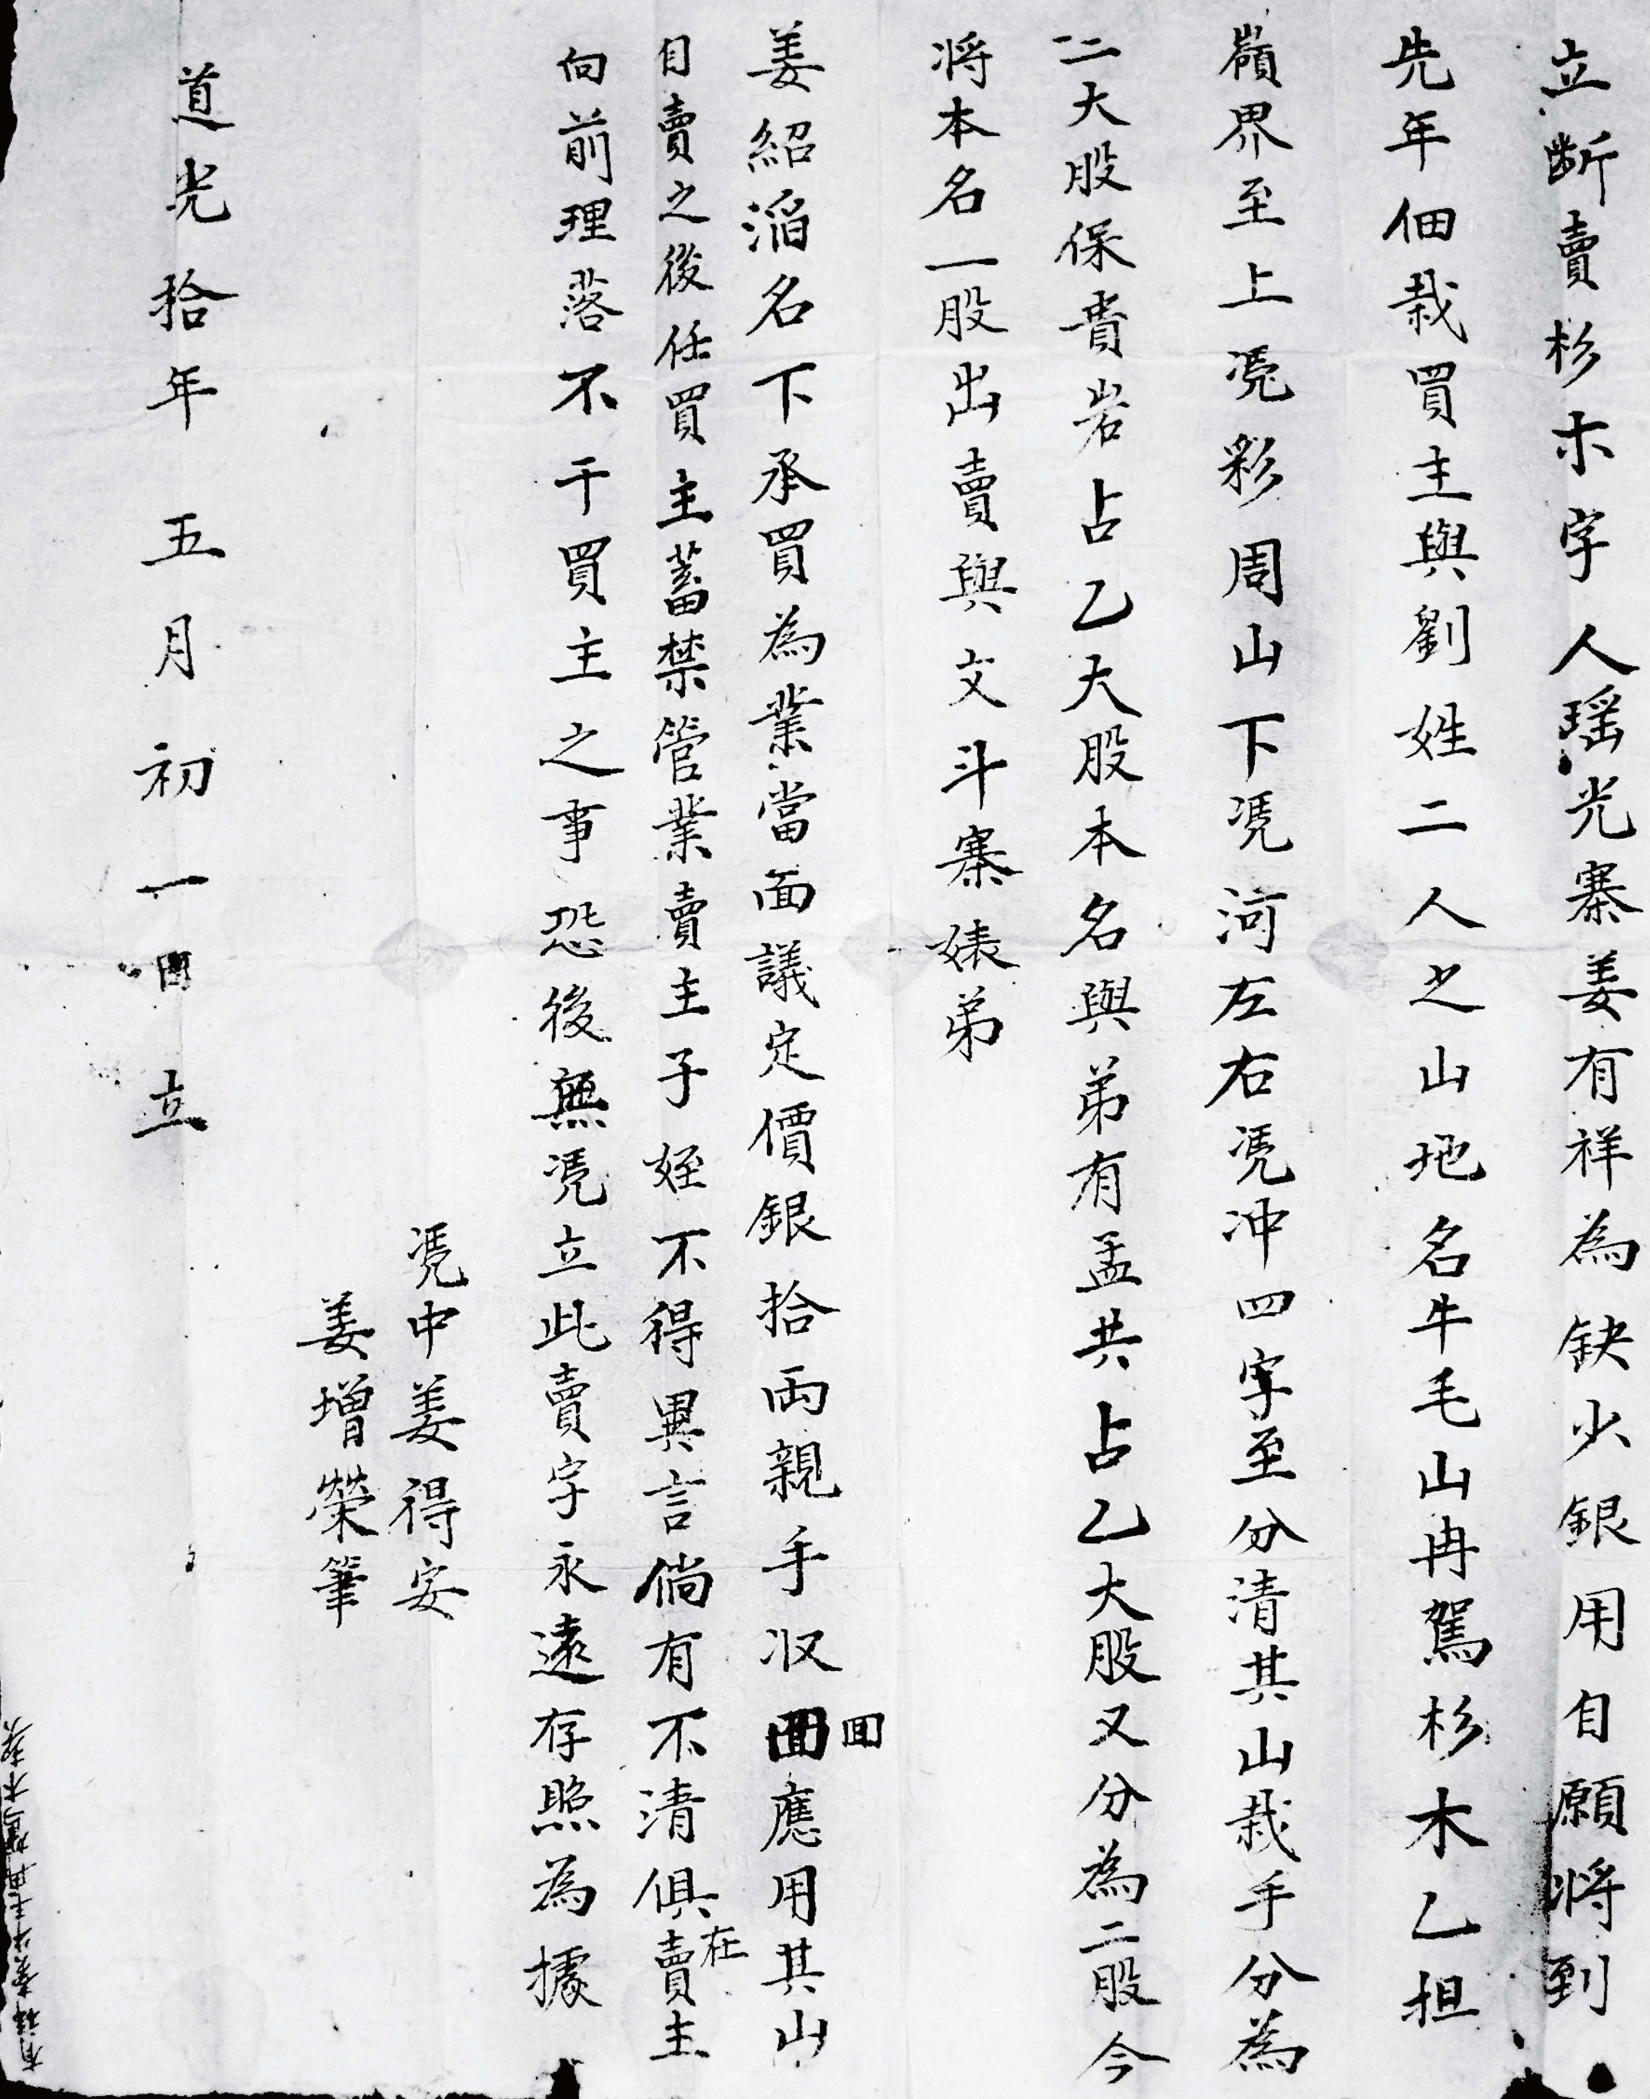 立斷賣杉木字人瑶光寨姜有祥為缺少銀用自願將到
先年佃栽買主與劉姓二人之山地名牛毛山冉駡杉木乙担
嶺界至上凴彩周山下凴河左右凴冲四字至分清其山栽手分為
二大股保貴岩占乙大股本名與弟有孟共占乙大股又分為二股今
將本名一股出賣與文斗寨婊弟
姜紹滔名下承買為業當面議定價銀拾両親手収回應用其山
回
自賣之後任買主蓄禁管業賣主子姪不得異言倘有不清俱在賣主
向前理落不干買主之事恐後無凴立此賣字永遠存照為據
凴中姜得安
姜增榮筆
道光拾年五月初一日立